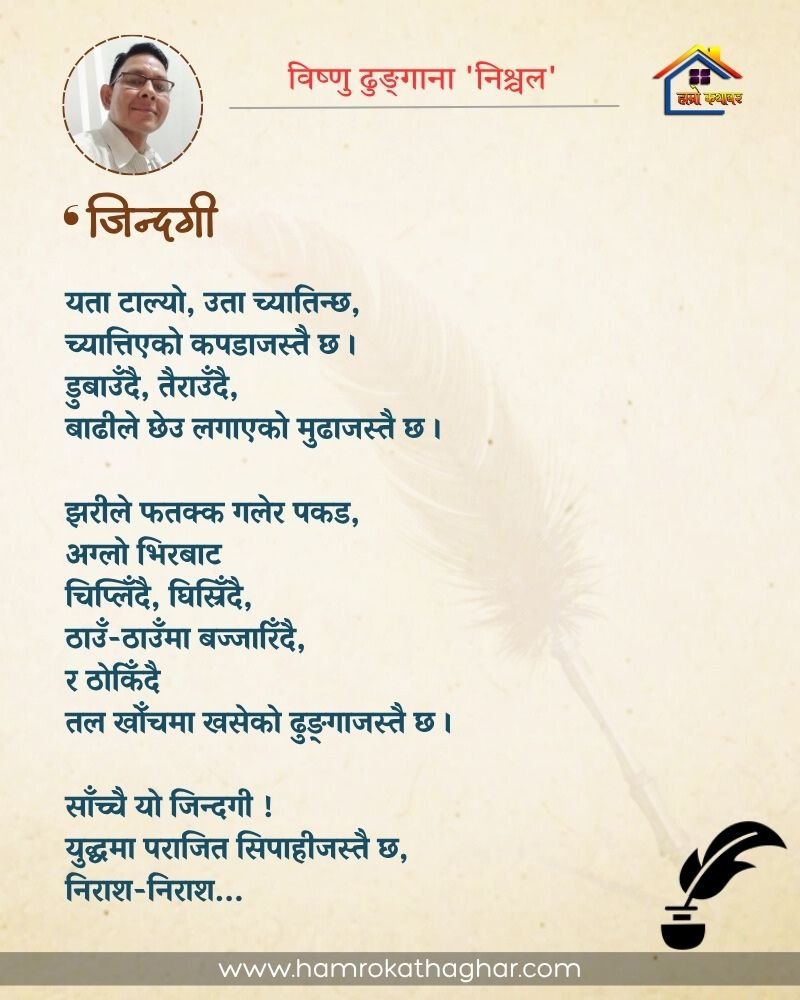 विष्णु ढुङ्गाना 'निश्चल'
हाम्रो कथाघर
‘जिन्दगी
यता टाल्यो, उता च्यातिन्छ,
च्यात्तिएको कपडाजस्तै छ।
डुबाउँदै, तैराउँदै,
बाढीले छेउ लगाएको मुढाजस्तै छ।
झरीले फतक्क गलेर पकड,
अग्लो भिरबाट
चिप्लिँदै, घिस्रिँदै,
ठाउँ-ठाउँमा बज्जारिँदै,
र ठोकिँदै
तल खोँचमा खसेको ढुङ्गाजस्तै छ।
साँच्चै यो जिन्दगी !
युद्धमा पराजित सिपाहीजस्तै छ,
निराश-निराश...
www.hamrokathaghar.com